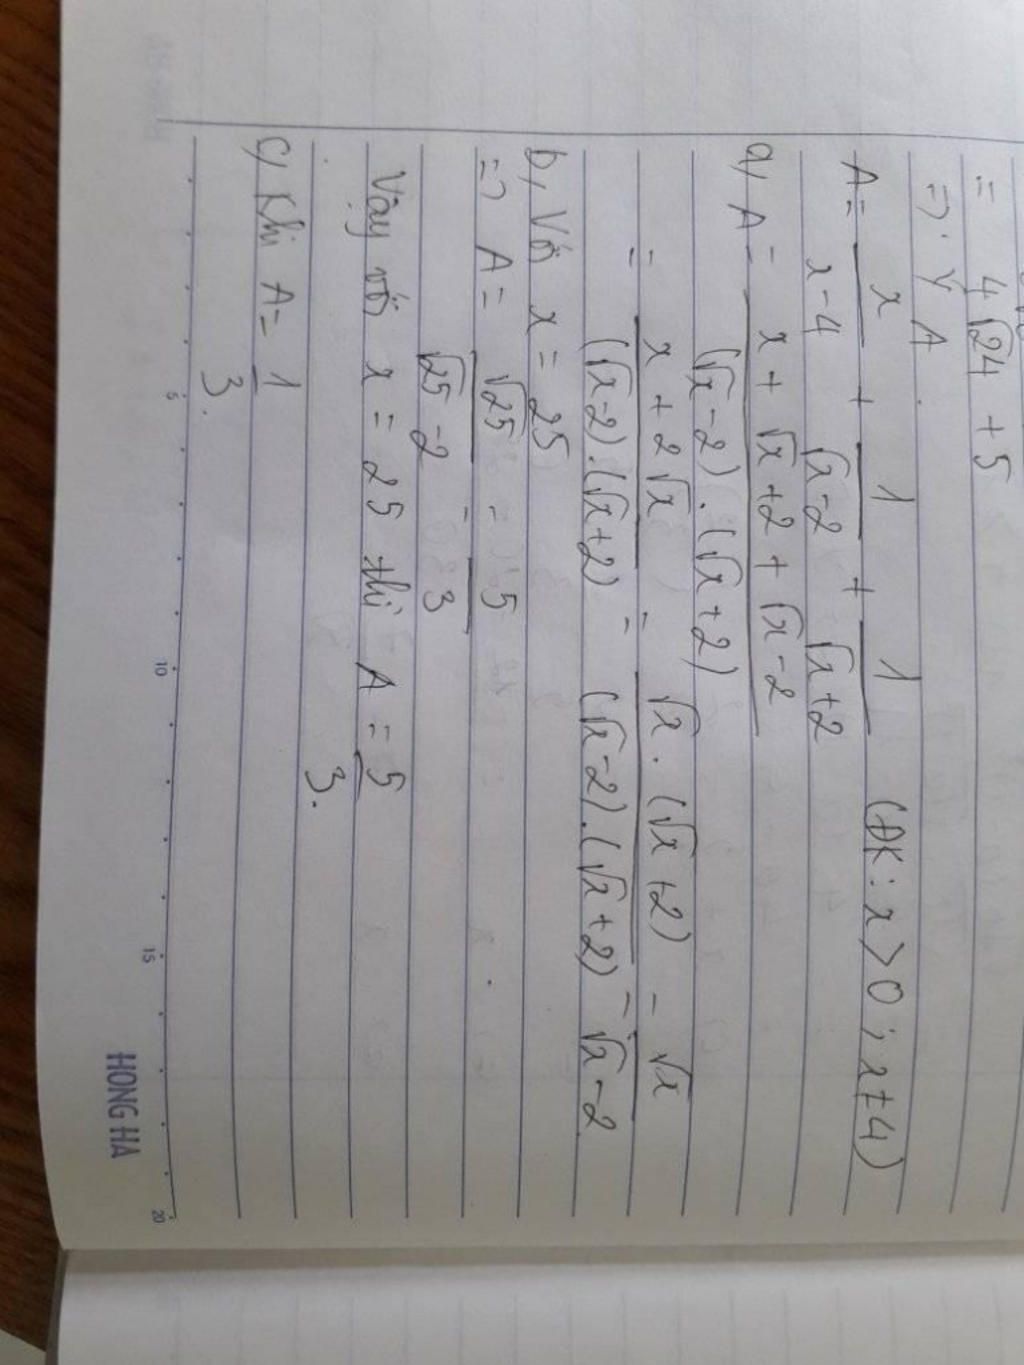 = 4√24 + 5
=> A
A = x/(x-4) + 1/(√x-2) + 1/(√x+2) (ĐK: x > 0; x ≠ 4)
a, A = (x + √x+2 + √x-2)/((√x-2).(√x+2))
= (x + 2√x)/((√x-2).(√x+2)) = (√x.(√x+2))/((√x-2).(√x+2)) = √x/(√x-2)
b, Với x = 25
=> A = √25/(√25-2) = 5/3
Vậy với x = 25 thì A = 5/3.
c, Khi A = 1/3.
5 10 15 20
HONG HA